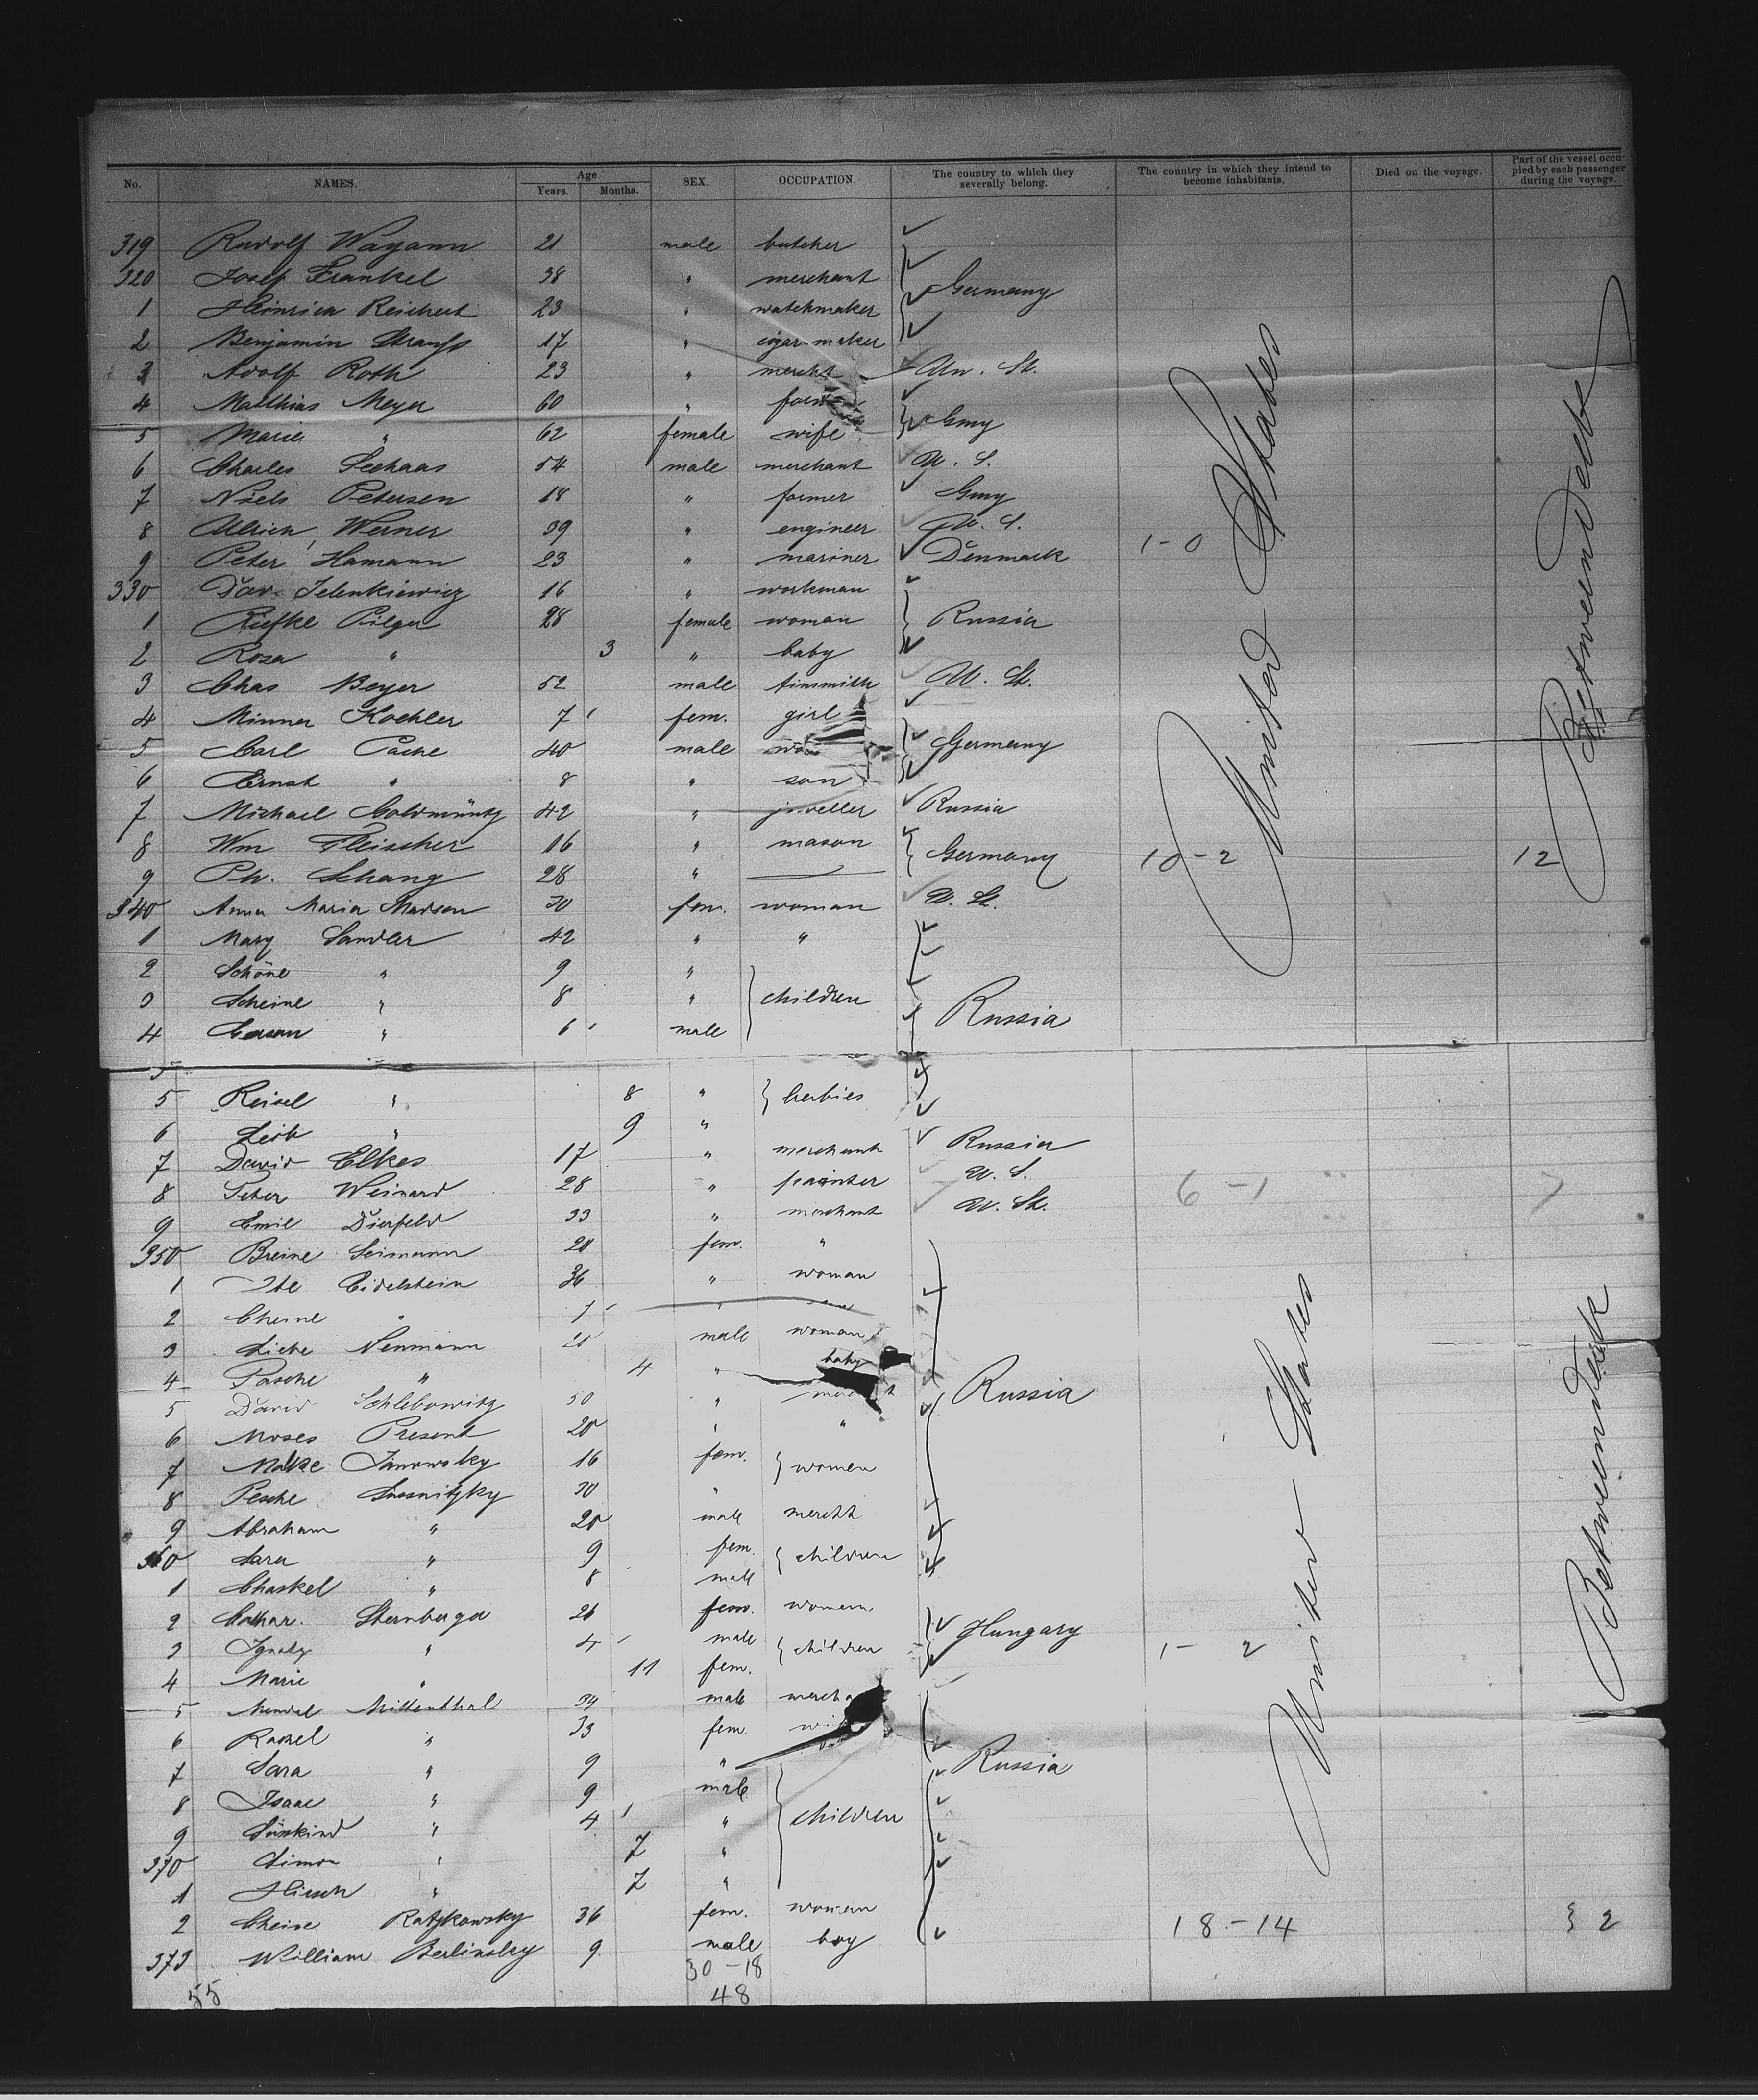 No. NAMES. Age Years. Months. SEX. OCCUPATION. The country to which they severally belong. The country in which they intend to become inhabitants. Died on the voyage. Part of the vessel occupied by each passenger during the voyage.
319 Rudolf Wagann 21 male butcher
320 Josef Frankel 38 " merchant
1 Heinrich Reichert 23 " watchmaker Germany
2 Benjamin Strauss 17 " cigar-maker
3 Adolf Roth 23 " mercht Un. St.
4 Matthias Meyer 60 "
5 Marie " 62 female wife Gmy
6 Charles Seehaas 54 male merchant U. S.
7 Niels Petersen 18 " farmer Gmy
8 Ulrich Werner 39 " engineer U. S.
9 Peter Hamann 23 " mariner Denmark 1-0
330 Dav. Selenkiewicz 16 " workman
1 Riefke Pilger 28 female woman Russia
2 Rosa " 3 " baby
3 Chas Beyer 52 male tinsmith U. St.
4 Minna Koehler 7 fem. girl
5 Carl Pache 40 male Germany
6 Ernst " 8 " son
7 Michael Goldmüntz 42 " jeweller Russia
8 Wm Fleischer 16 " mason
9 Ph. Schang 28 " Germany 10-2 12
340 Anna Maria Madsen 30 fem. woman U. St.
1 Mary Sandler 42 " "
2 Schöne " 9 "
3 Scheine " 8 " children Russia
4 Gerson " 6 male
United States
Betweendeck
5
5 Reisel " 8 " babies
6 Leib " 9 "
7 David Elkes 17 " merchant Russia
8 Peter Weinard 28 " painter U. S. 6-1 7
9 Emil Dierfeld 33 " merchant U. St.
350 Breine Leimann 20 fem. "
1 Ite Eidelstein 36 " woman
2 Cheine " 7 "
3 Liebe Neumann 20 male woman
4 Pasche " 4 " baby
5 David Schlebowitz 50 " Russia
6 Moses Present 20 " "
7 Malke Janowsky 16 fem. women
8 Pesche Sosnitzky 30 "
9 Abraham " 20 male mercht
360 Sara " 9 fem. children
1 Chaskel " 8 male
2 Cathar. Sternberger 26 fem. woman
3 Ignatz " 4 male children Hungary 1-2
4 Marie " 11 fem.
5 Mendel Mittenthal 34 male
6 Rachel " 33 fem.
7 Sara " 9 " Russia
8 Isaac " 9 male
9 Süsskind " 4 " children
370 Simon " 7 "
1 Hirsch " 7 "
2 Cheine Ratzkowsky 36 fem. woman 18-14 2
373 William Berlinsky 9 male boy
United States
Betweendeck
30-18
55 48